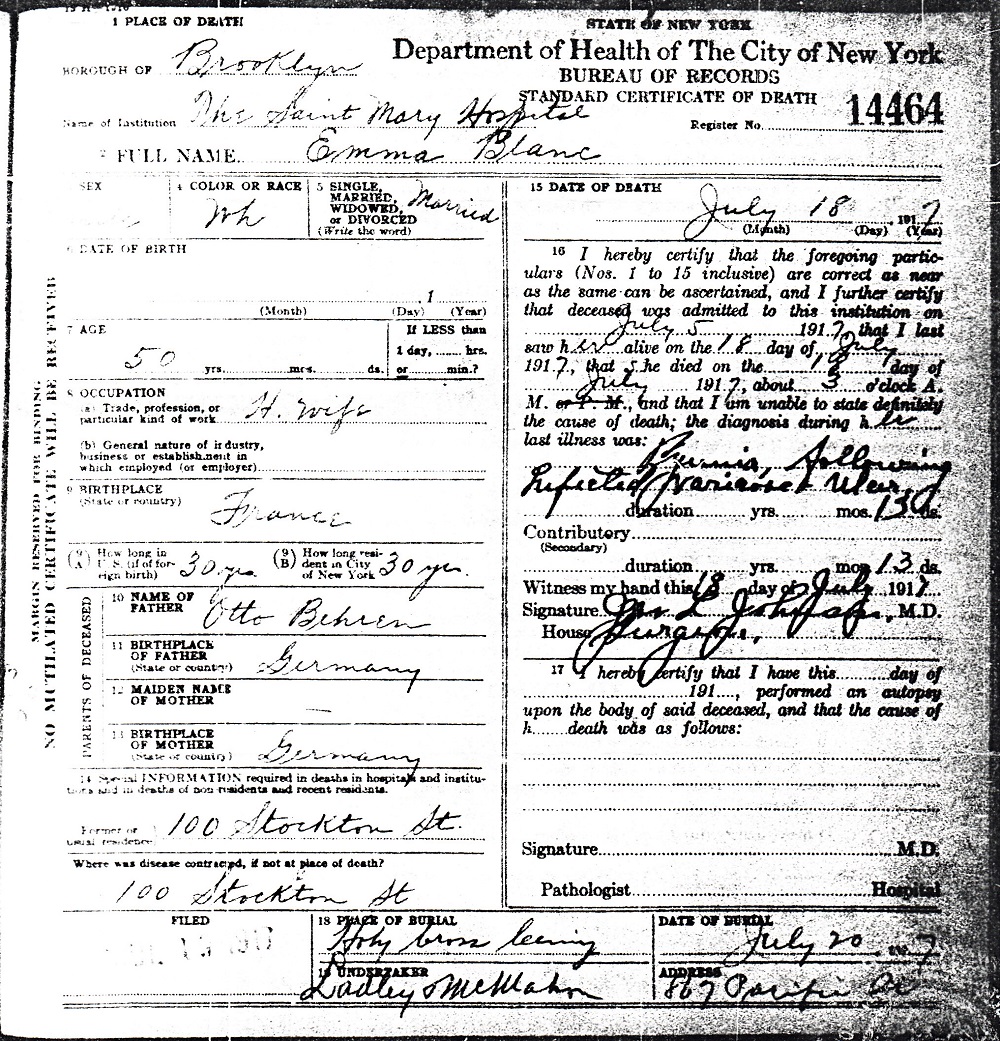 1 PLACE OF DEATH
STATE OF NEW YORK
Department of Health of The City of New York
BUREAU OF RECORDS
STANDARD CERTIFICATE OF DEATH
BOROUGH OF Brooklyn
Name of Institution The Saint Mary Hospital
Register No. 14464
2 FULL NAME Emma Blanc
SEX
4 COLOR OR RACE
Wh
5 SINGLE,
MARRIED,
WIDOWED,
or DIVORCED
(Write the word)
Married
6 DATE OF BIRTH
, 1
(Month) (Day) (Year)
7 AGE
50 yrs. mos. ds.
If LESS than
1 day, ...... hrs.
or ...... min.?
8 OCCUPATION
(a) Trade, profession, or
particular kind of work H. wife
(b) General nature of industry,
business or establishment in
which employed (or employer)
9 BIRTHPLACE
(State or country)
France
(9 A) How long in
U. S. (if of for-
eign birth) 30 yrs.
(9 B) How long resi-
dent in City
of New York 30 yrs.
PARENTS OF DECEASED
10 NAME OF
FATHER
Otto Behren
11 BIRTHPLACE
OF FATHER
(State or country)
Germany
12 MAIDEN NAME
OF MOTHER
—
13 BIRTHPLACE
OF MOTHER
(State or country)
Germany
14 Special INFORMATION required in deaths in hospitals and institu-
tions and in deaths of non-residents and recent residents.
Former or
usual residence 100 Stockton St.
Where was disease contracted, if not at place of death?
100 Stockton St
MARGIN RESERVED FOR BINDING
NO MUTILATED CERTIFICATE WILL BE RECEIVED
15 DATE OF DEATH
July 18 1917
(Month) (Day) (Year)
16 I hereby certify that the foregoing partic-
ulars (Nos. 1 to 15 inclusive) are correct as near
as the same can be ascertained, and I further certify
that deceased was admitted to this institution on
July 5 1917, that I last
saw her alive on the 18 day of July
1917, that she died on the 18 day of
July 1917, about 3 o'clock A.
M. or P. M., and that I am unable to state definitely
the cause of death; the diagnosis during her
last illness was:
following
Infected Varicose
duration yrs. mos. 13 ds.
Contributory
(Secondary)
duration yrs. mos. 13 ds.
Witness my hand this 18 day of July 1917
Signature M.D.
House Surgeon,
17 I hereby certify that I have this ...... day of
191...., performed an autopsy
upon the body of said deceased, and that the cause of
h......death was as follows:
Signature M.D.
Pathologist Hospital
FILED
18 PLACE OF BURIAL
Holy Cross
DATE OF BURIAL
July 20 1917
19 UNDERTAKER
McMahon
ADDRESS
867 Pacific